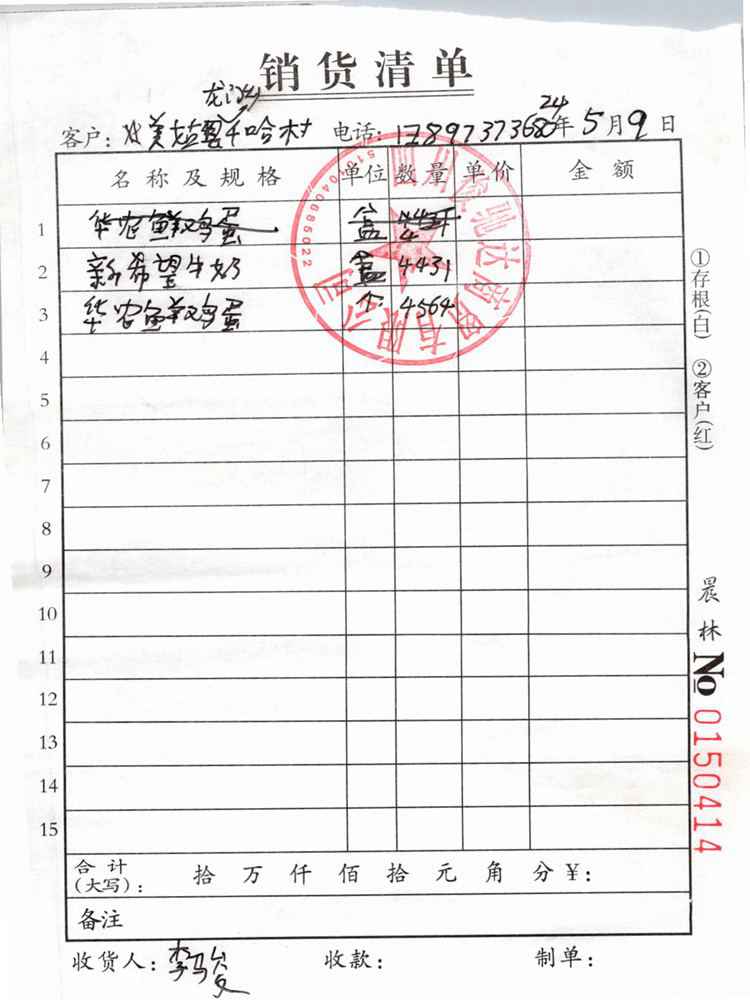 销货清单
龙沙
客户: 美姑县 千哈村 电话: 17897373680 24年5月9日
名称及规格 单位 数量 单价 金额
1 华农鲜鸡蛋 盒
2 新希望牛奶 盒 4431
3 华农鲜鸡蛋 个 4564
4
5
6
7
8
9
10
11
12
13
14
15
合计(大写): 拾 万 仟 佰 拾 元 角 分 ¥:
备注
收货人: 李马 收款: 制单:
①存根(白) ②客户(红)
晨林
No 0150414
有限公司